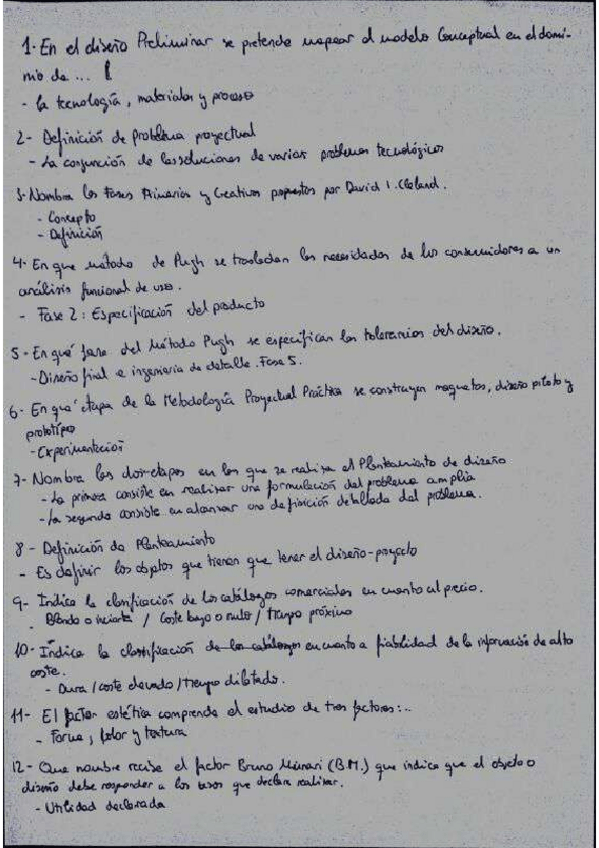 1- En el diseño Preliminar se pretende mapear el modelo Conceptual en el domi-
nio de ...
- la tecnología, materiales y proceso
2- Definición de Problema proyectual
- La conjunción de las soluciones de varios problemas tecnológicos
3- Nombra las Fases Primarias y Creativas propuestas por David I. Cleland.
- Concepto
- Definición
4- En que método de Pugh se trasladan las necesidades de los consumidores a un
análisis funcional de uso.
- Fase 2: Especificación del producto
5- En qué fase del Método Pugh se especifican las tolerancias del diseño.
- Diseño final e ingeniería de detalle. Fase 5.
6- En qué etapa de la Metodología Proyectual Práctica se construyen maquetas, diseño piloto y
prototipo
- Experimentación
7- Nombra las dos etapas en las que se realiza el Planteamiento de diseño
- La primera consiste en realizar una formulación del problema amplia
- La segunda consiste en alcanzar una definición detallada del problema.
8- Definición de Planteamiento
- Es definir los objetos que tienen que tener el diseño-proyecto
9- Indica la clasificación de los catálogos comerciales en cuanto al precio.
- Blando o incierta / Coste bajo o nulo / tiempo próximo
10- Indica la clasificación de los catálogos en cuanto a fiabilidad de la información de alto
coste.
- Dura / coste elevado / tiempo dilatado.
11- El factor estética comprende el estudio de tres factores:..
- Forma, color y textura
12- Que nombre recibe el factor Bruno Munari (B.M.) que indica que el objeto o
diseño debe responder a los usos que declara realizar.
- Utilidad declarada